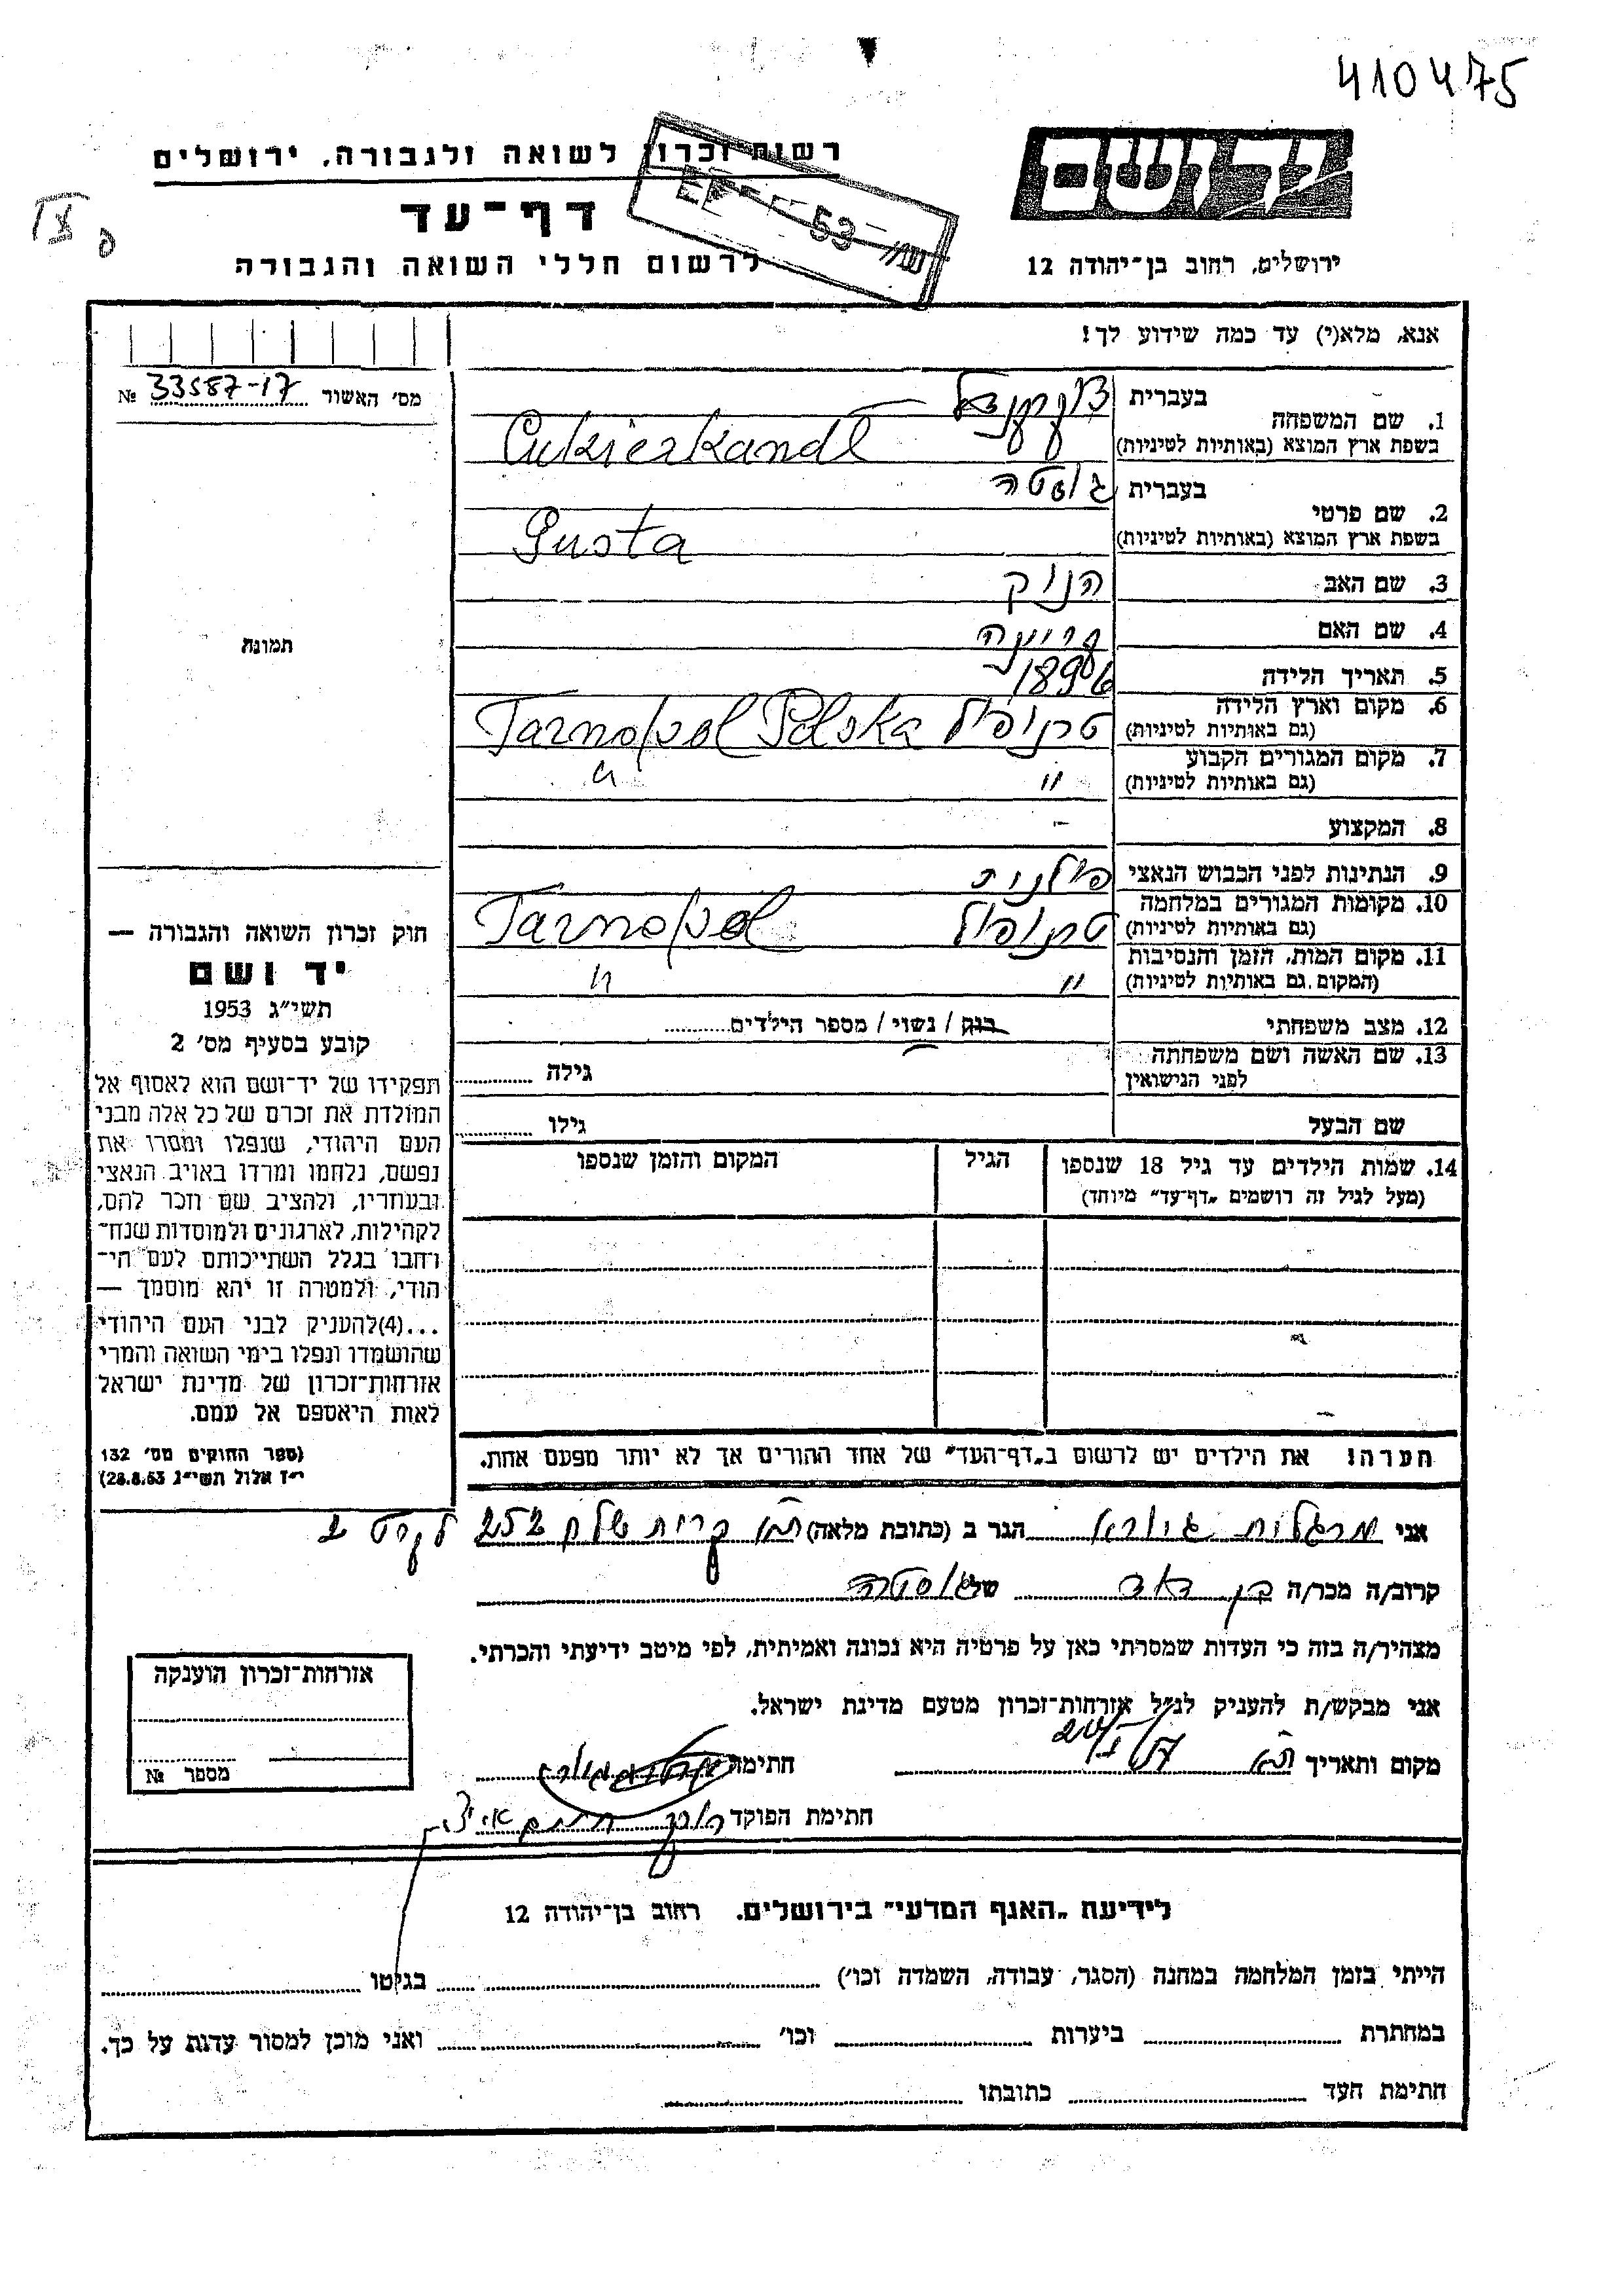 410475
רשות זכרון לשואה ולגבורה, ירושלים
דף-עד
לרשום חללי השואה והגבורה
ירושלים, רחוב בן-יהודה 12
אנא, מלא(י) עד כמה שידוע לך!
מס' האשור 33587-17 №
1. שם המשפחה
בעברית צוקרקנדל
בשפת ארץ המוצא (באותיות לטיניות) Cukierkandl
2. שם פרטי
בעברית גוסטה
בשפת ארץ המוצא (באותיות לטיניות) Gusta
3. שם האב
4. שם האם
5. תאריך הלידה
6. מקום וארץ הלידה טרנופול Tarnopol Polska
(גם באותיות לטיניות)
7. מקום המגורים הקבוע " "
(גם באותיות לטיניות)
8. המקצוע -
9. הנתינות לפני הכבוש הנאצי פולנית
10. מקומות המגורים במלחמה טרנופול Tarnopol
(גם באותיות לטיניות)
11. מקום המות, הזמן והנסיבות " "
(המקום גם באותיות לטיניות)
12. מצב משפחתי רווק / נשוי / מספר הילדים
13. שם האשה ושם משפחתה
לפני הנישואין
גילה
שם הבעל גילו
14. שמות הילדים עד גיל 18 שנספו הגיל המקום והזמן שנספו
(מעל לגיל זה רושמים „דף-עד" מיוחד)
הערה! את הילדים יש לרשום ב„דף-העד" של אחד ההורים אך לא יותר מפעם אחת.
תמונה
חוק זכרון השואה והגבורה —
יד ושם
תשי"ג 1953
קובע בסעיף מס' 2
תפקידו של יד-ושם הוא לאסוף אל
המולדת את זכרם של כל אלה מבני
העם היהודי, שנפלו ומסרו את
נפשם, נלחמו ומרדו באויב הנאצי
ובעוזריו, ולהציב שם וזכר להם,
לקהילות, לארגונים ולמוסדות שנח-
רבו בגלל השתייכותם לעם הי-
הודי, ולמטרה זו יהא מוסמך —
...(4)להעניק לבני העם היהודי
שהושמדו ונפלו בימי השואה והמרי
אזרחות-זכרון של מדינת ישראל
לאות היאספם אל עמם.
(ספר החוקים מס' 132
י"ז אלול תשי"ג 28.8.53)
אני מרגלית הגר ב (כתובת מלאה) קרית שלום 252
קרוב/ה מכר/ה בן דוד של גוסטה
מצהיר/ה בזה כי העדות שמסרתי כאן על פרטיה היא נכונה ואמיתית, לפי מיטב ידיעתי והכרתי.
אני מבקש/ת להעניק לנ"ל אזרחות-זכרון מטעם מדינת ישראל.
מקום ותאריך חתימה
חתימת הפוקד
אזרחות-זכרון הוענקה
מספר №
לידיעת „האגף המדעי" בירושלים. רחוב בן-יהודה 12
הייתי בזמן המלחמה במחנה (הסגר, עבודה, השמדה וכו') בגיטו
במחתרת ביערות וכו' ואני מוכן למסור עדות על כך.
חתימת העד כתובתו